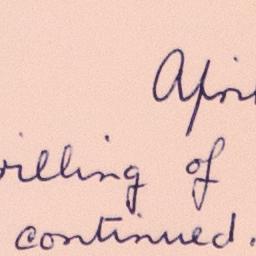 Apri
illing of
continued.